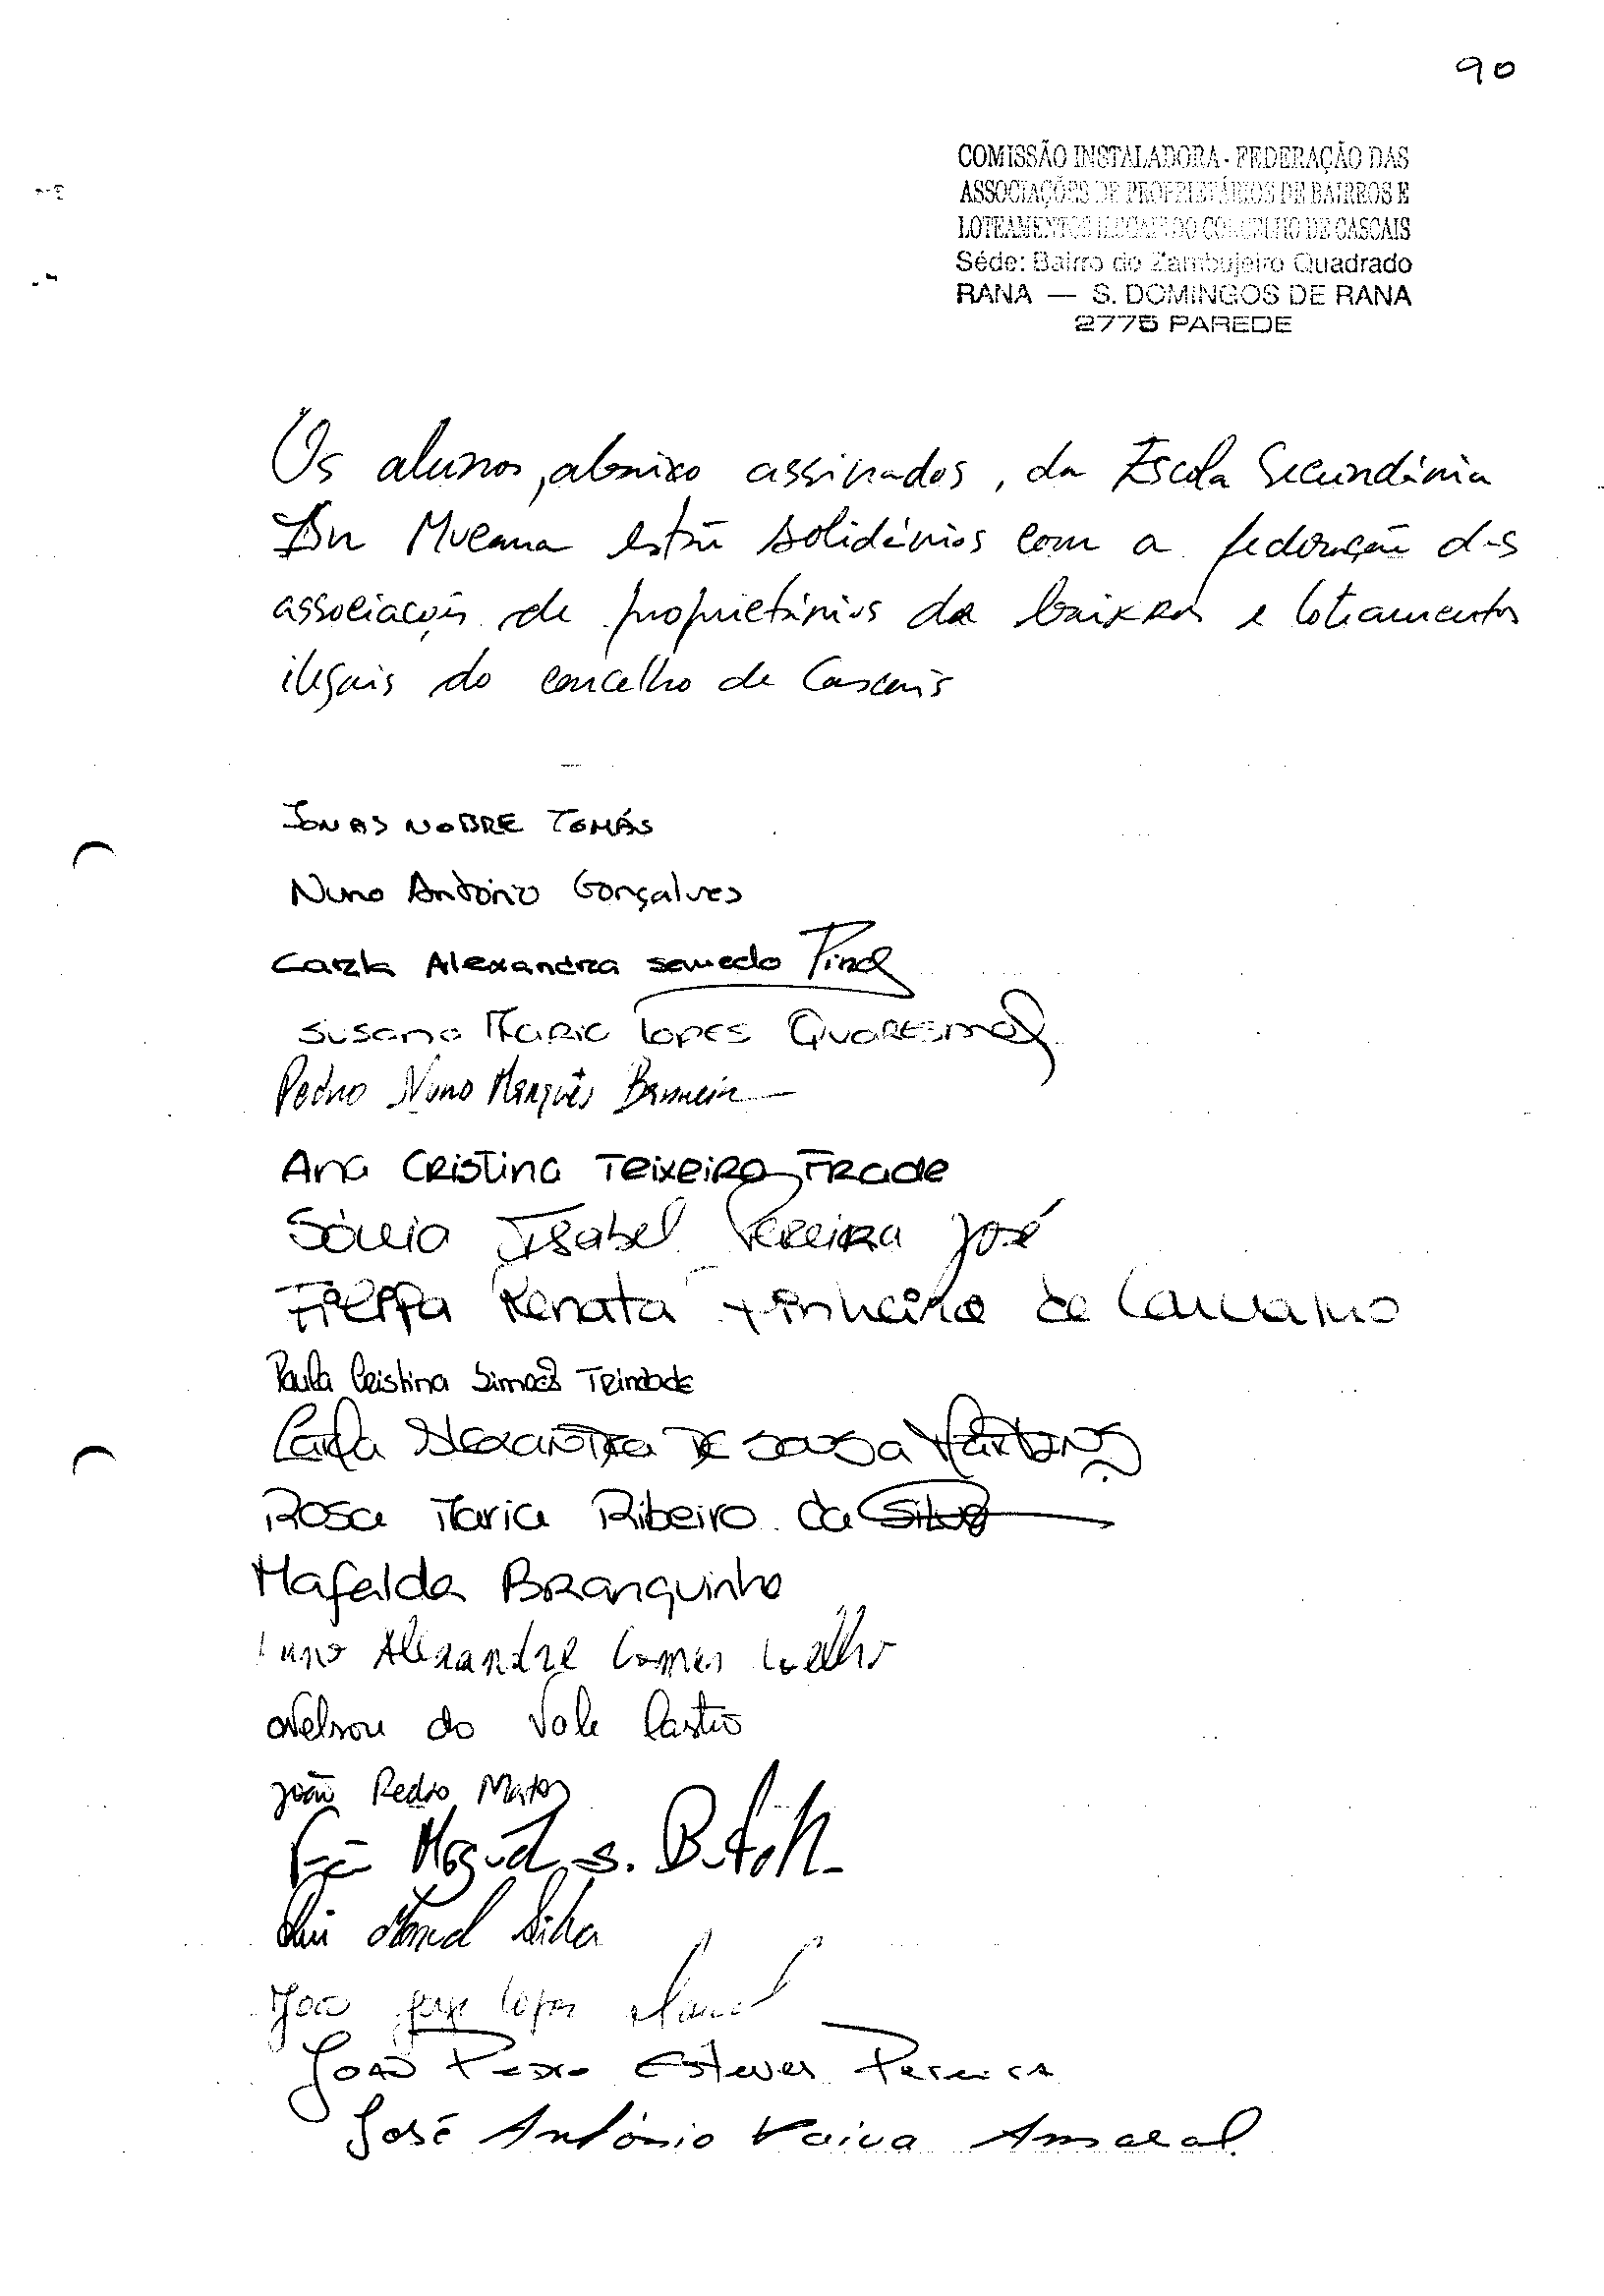 90
COMISSÃO INSTALADORA - FEDERAÇÃO DAS
ASSOCIAÇÕES DE PROPRIETÁRIOS DE BAIRROS E
LOTEAMENTOS ILEGAIS DO CONCELHO DE CASCAIS
Séde: Bairro do Zambujeiro Quadrado
RANA — S. DOMINGOS DE RANA
2775 PAREDE
Os alunos, abaixo assinados, da Escola Secundária
Ibn Mucana estão solidários com a federação das
associações de proprietários de bairros e loteamentos
ilegais do concelho de Cascais
JONAS NOBRE TOMÁS
Nuno António Gonçalves
Carla Alexandra Semedo Pina
Susana Maria Lopes Quaresma
Pedro Nuno Marquês
Ana Cristina Teixeira Frade
Sónia Isabel Pereira José
Filippa Renata Pinheiro de Carvalho
Paula Cristina Simões Trindade
Carla Alexandra de Sousa Martins
Rosa Maria Ribeiro da Silva
Mafalda Branquinho
Alexandre Gomes Coelho
Nelson do Vale Castro
João Pedro Matos
Miguel S.
Rui Manuel Silva
João Jorge Lopes
João Pedro Esteves Pereira
José António Paiva Amaral